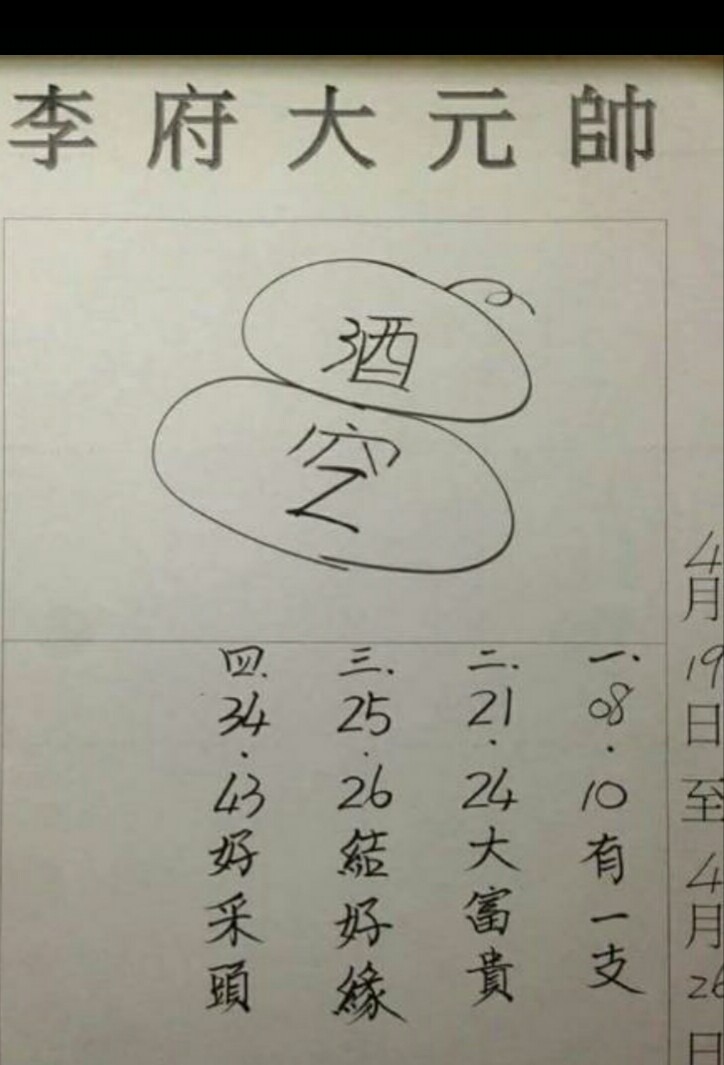 李府大元帥
酒
空
4月19日至4月26日
一.08.10有一支
二.21.24大富貴
三.25.26結好緣
四.34.43好采頭